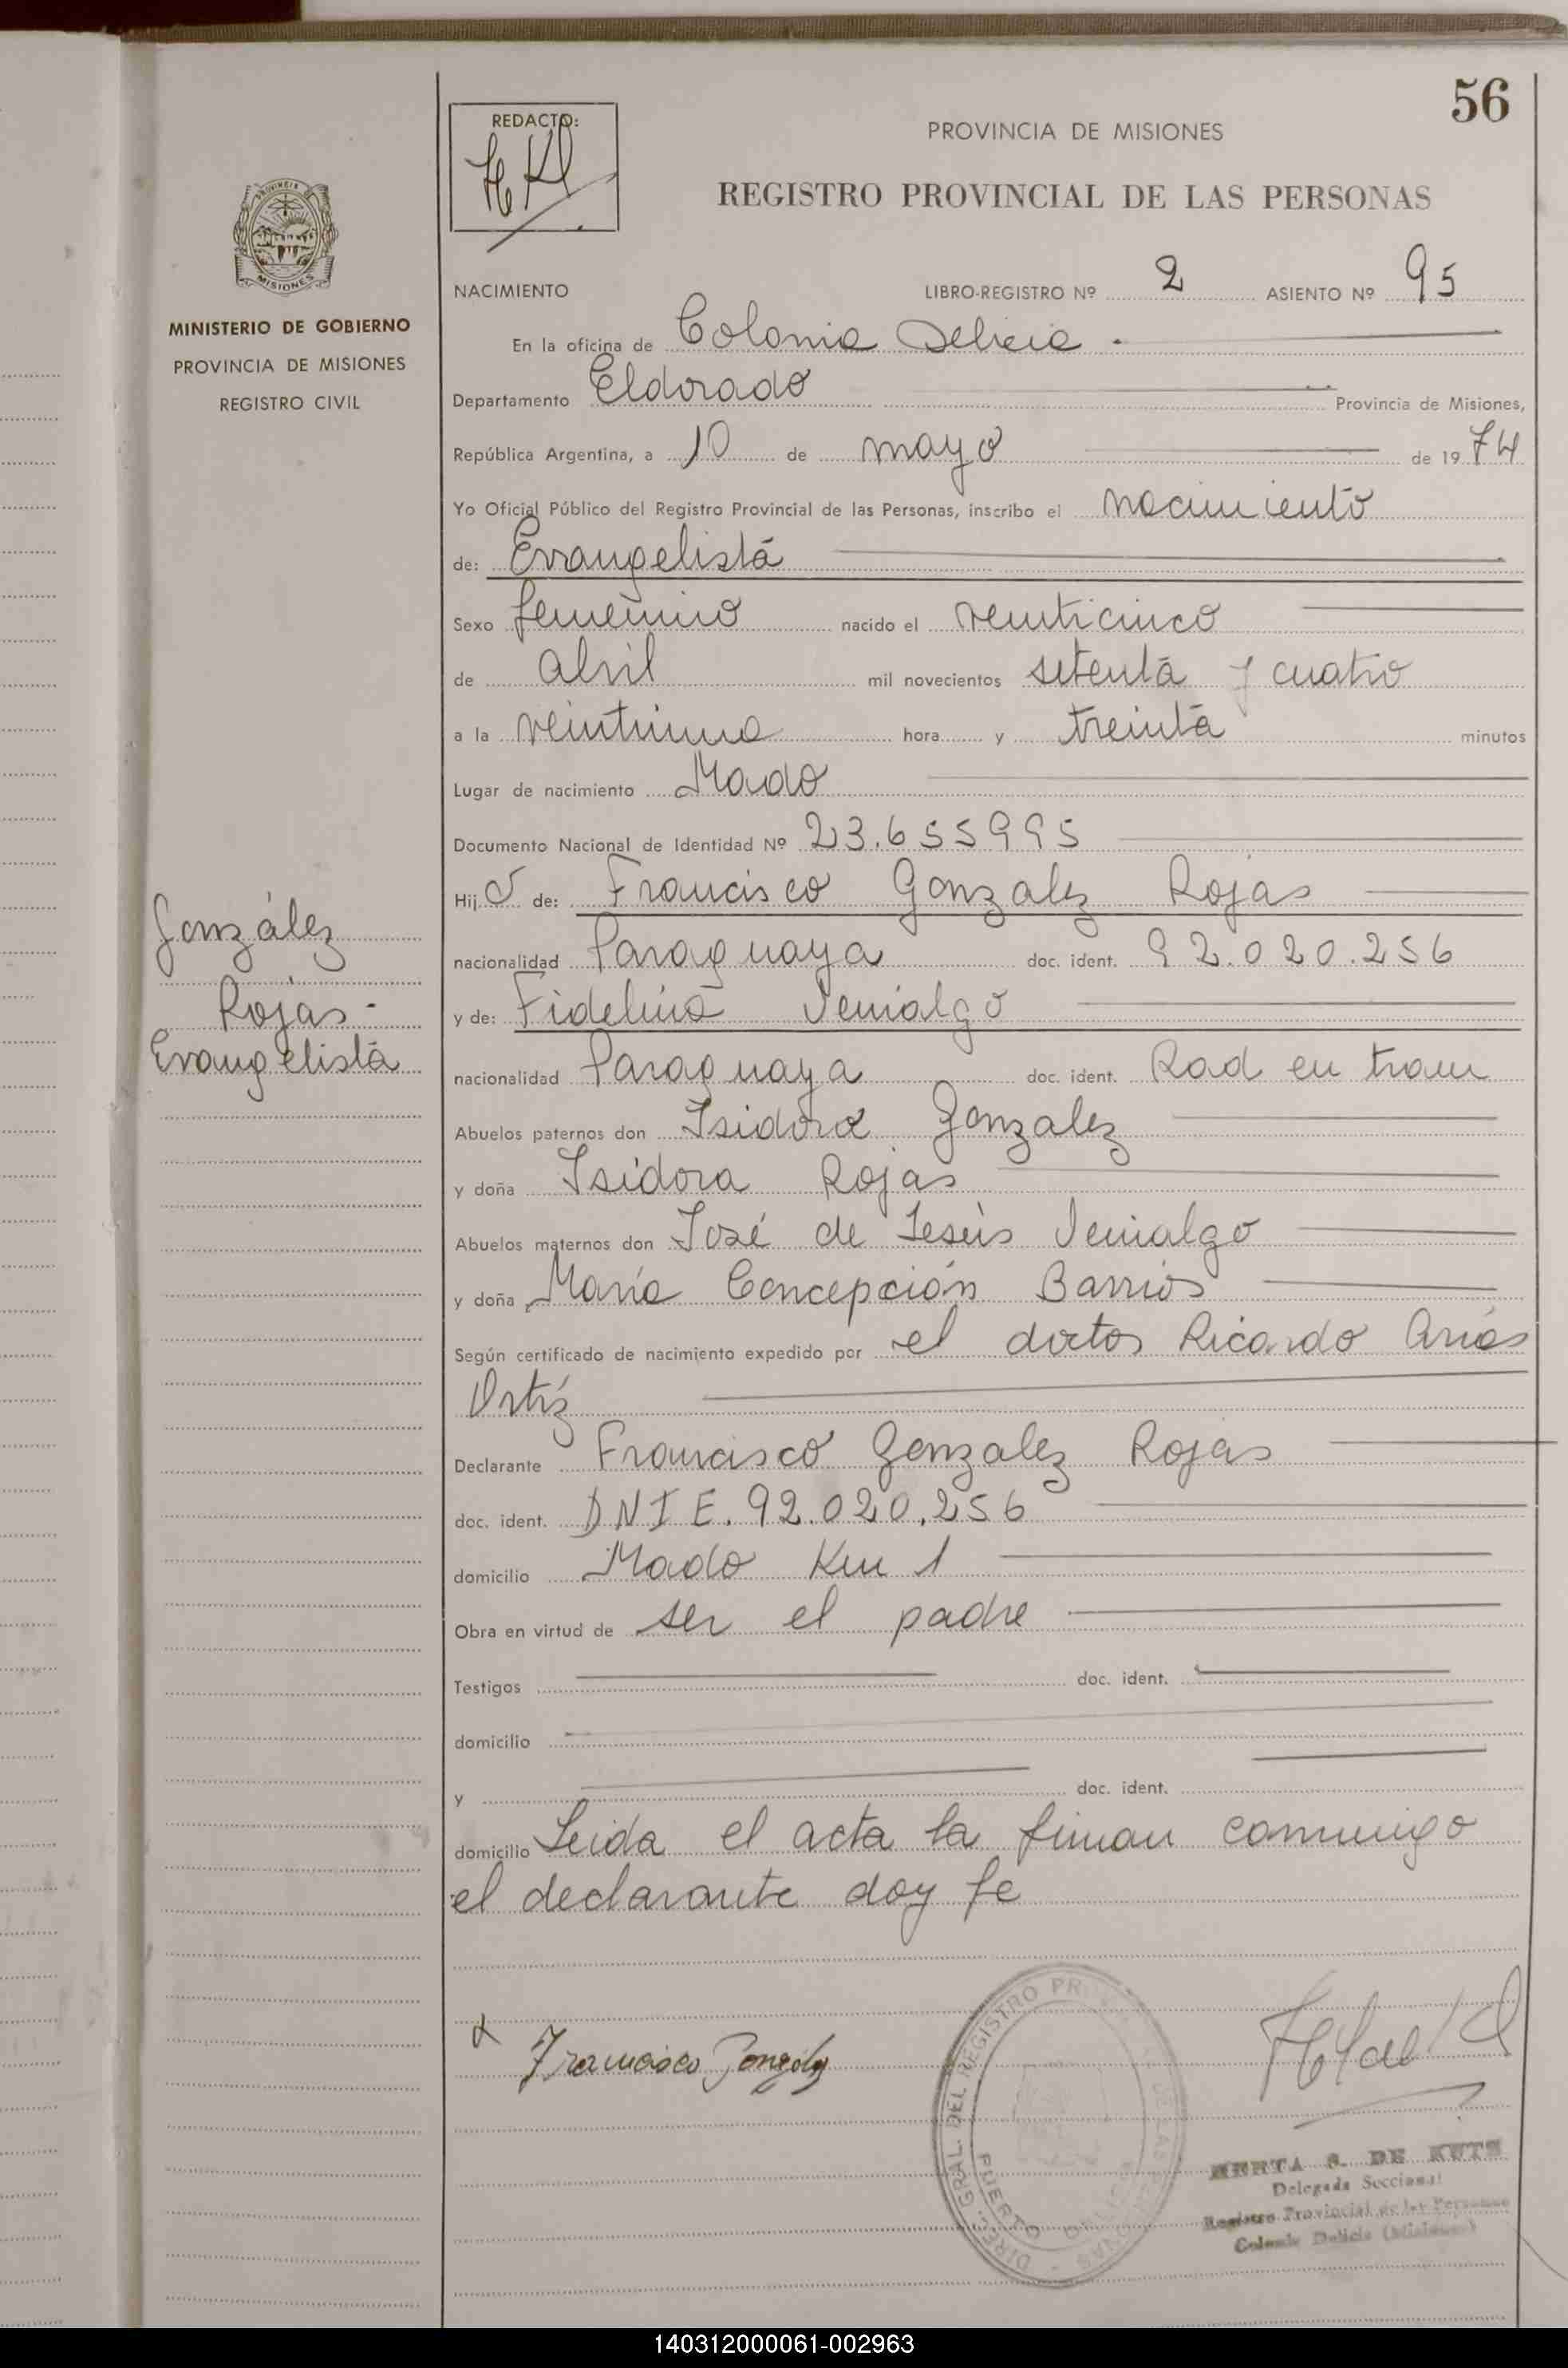 56
REDACTO:
PROVINCIA DE MISIONES
REGISTRO PROVINCIAL DE LAS PERSONAS
MISIONES
MINISTERIO DE GOBIERNO
PROVINCIA DE MISIONES
REGISTRO CIVIL
NACIMIENTO LIBRO-REGISTRO Nº 2 ASIENTO Nº 95
En la oficina de Colonia Delicia.
Departamento Eldorado Provincia de Misiones,
República Argentina, a 10 de mayo de 1974
Yo Oficial Público del Registro Provincial de las Personas, inscribo el nacimiento
de: Evangelista
Sexo femenino nacido el veinticinco
de abril mil novecientos setenta y cuatro
a la veintiuna hora y treinta minutos
Lugar de nacimiento Mado
Documento Nacional de Identidad Nº 23.655995
Hij de: Francisco Gonzalez Rojas
nacionalidad Paraguaya doc. ident. 92.020.256
y de: Fidelina Venialgo
nacionalidad Paraguaya doc. ident. Rad en tram
Abuelos paternos don Isidora Gonzalez
y doña Isidora Rojas
Abuelos maternos don José de Jesús Venialgo
y doña María Concepción Barrios
Según certificado de nacimiento expedido por el doctor Ricardo Arias
Ortíz
Declarante Francisco Gonzalez Rojas
doc. ident. DNI E. 92.020.256
domicilio Mado Km 1
Obra en virtud de ser el padre
Testigos doc. ident.
domicilio
y doc. ident.
domicilio Leida el acta la firman conmigo
el declarante doy fe
González
Rojas -
Evangelista
Francisco Gonzalez
DIREC. GRAL. DEL REGISTRO PR
PUERTO
HERTA S. DE KUTS
Delegada Seccional
Registro Provincial de las Personas
Colonia Delicia (Misiones)
140312000061-002963